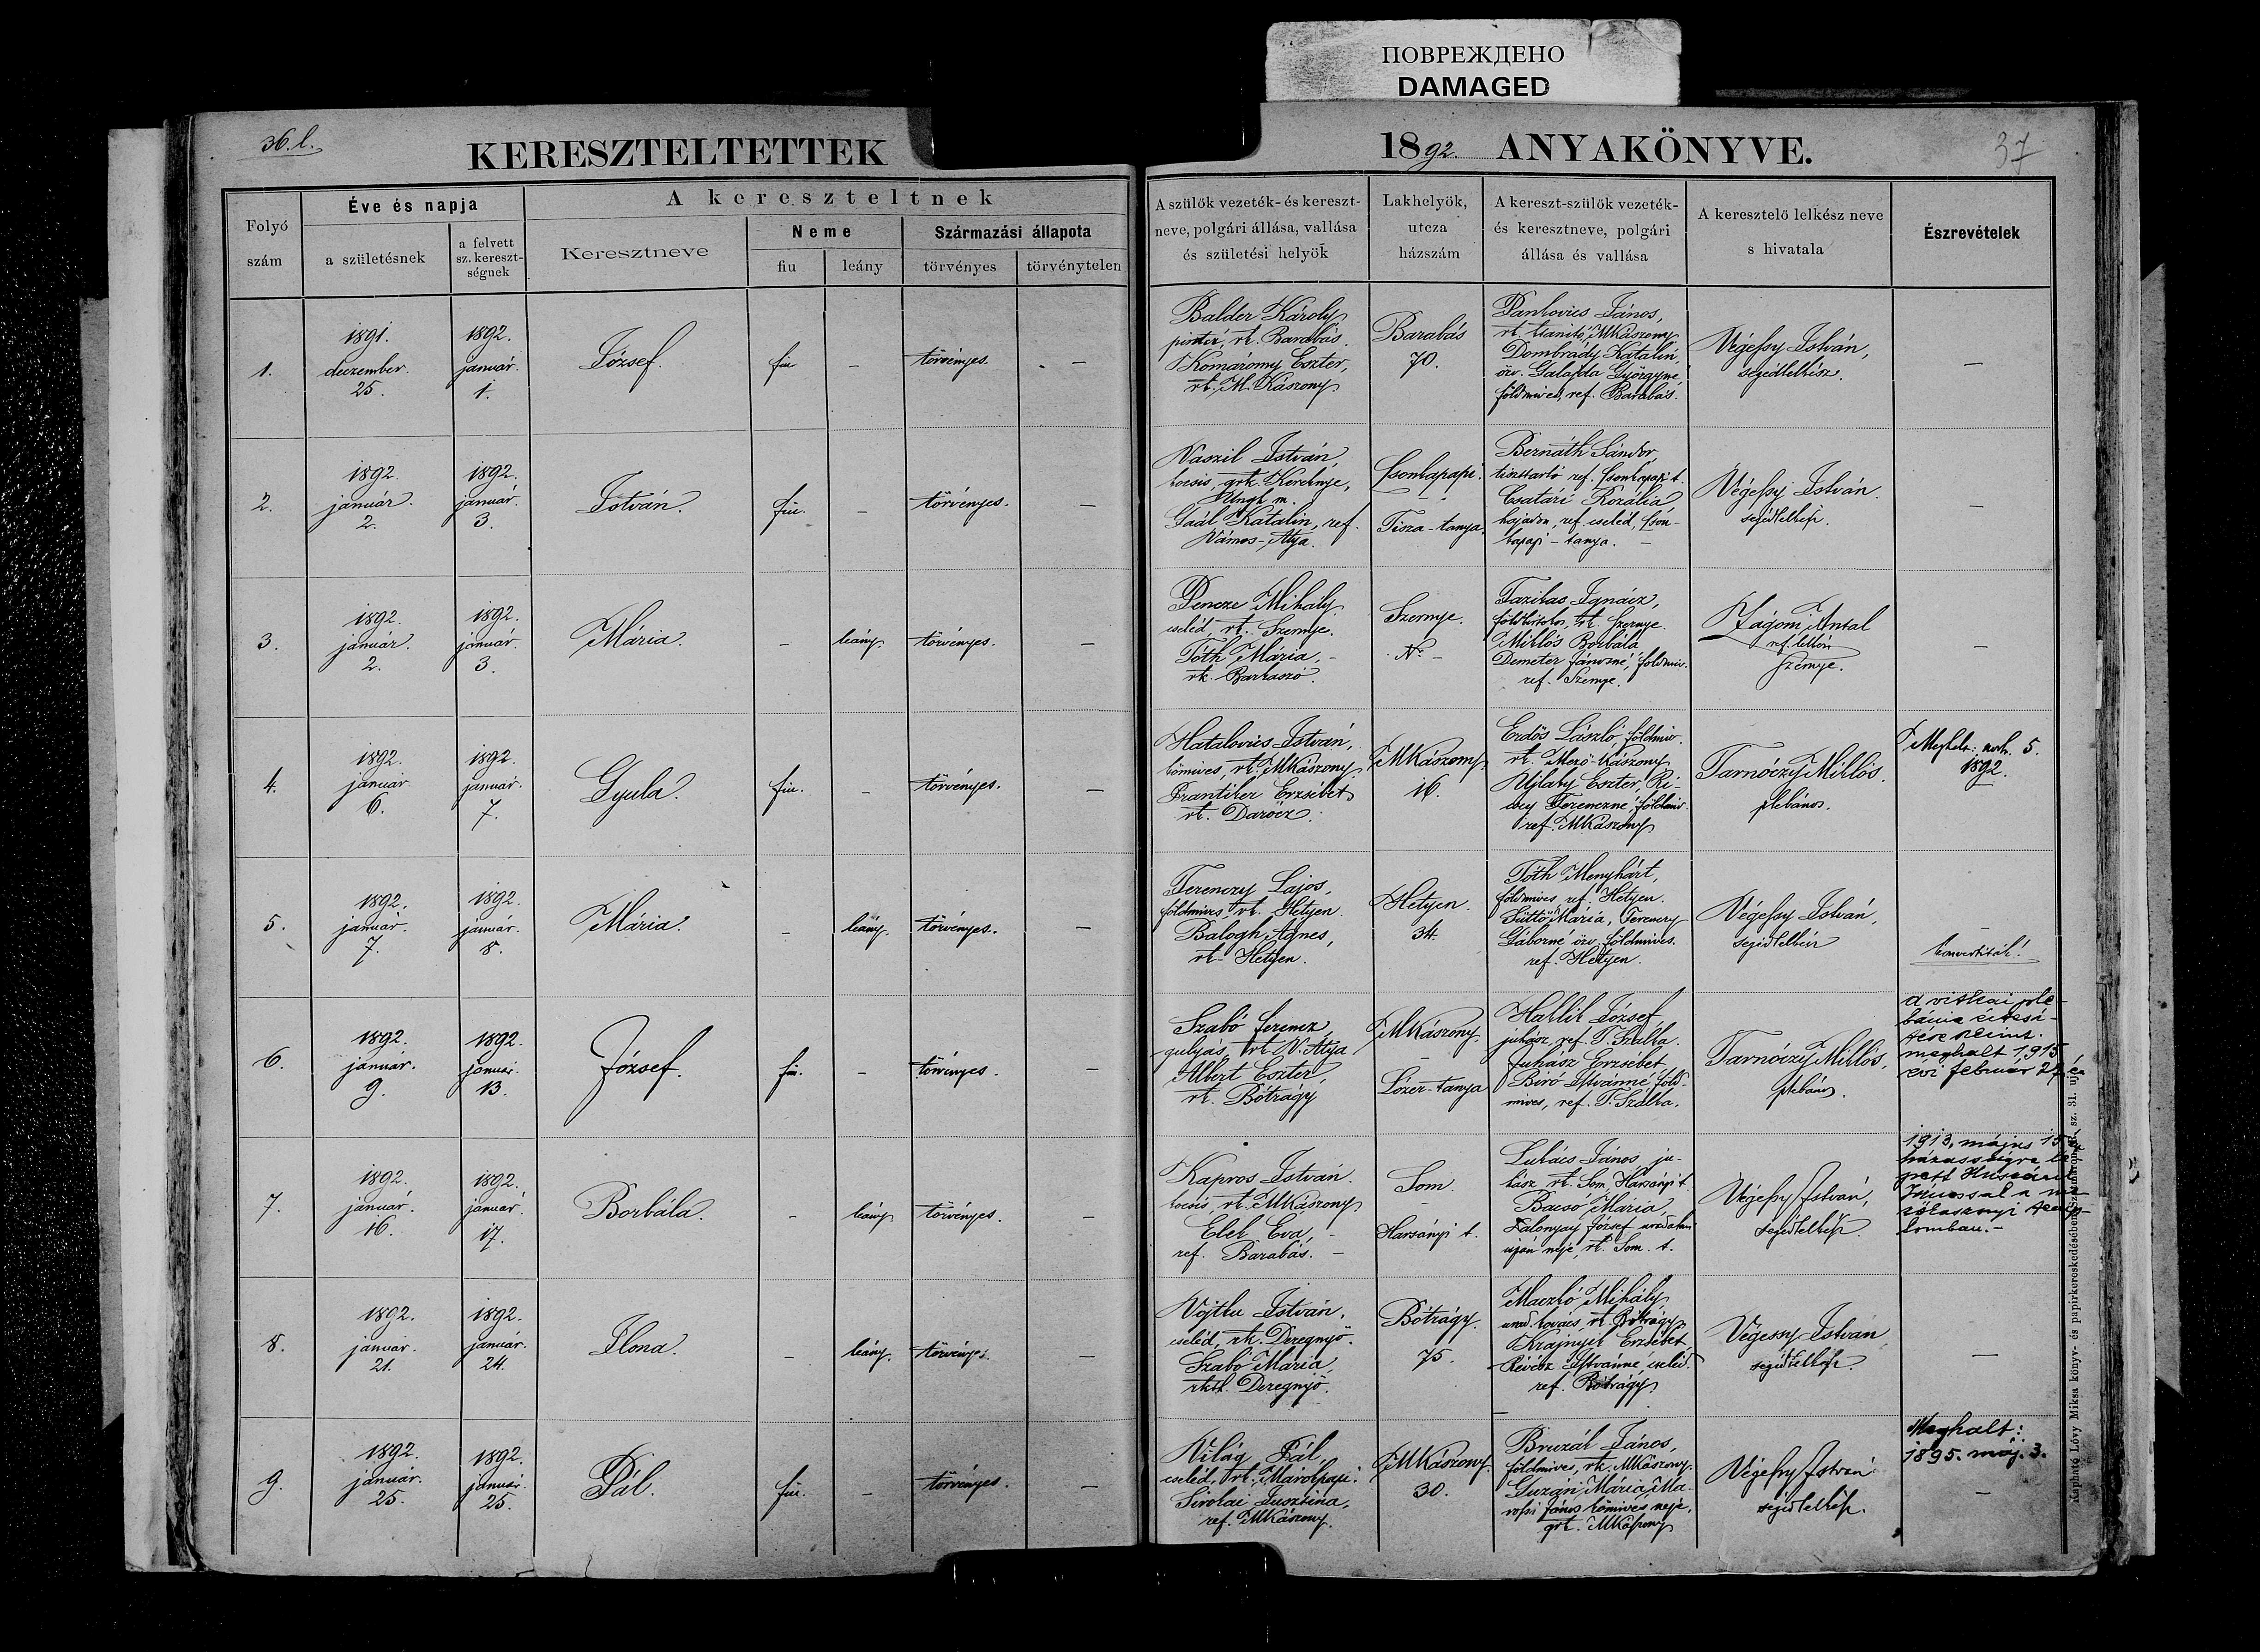 ПОВРЕЖДЕНО
DAMAGED
36. l.
KERESZTELTETTEK
1892. ANYAKÖNYVE.
37
Folyó szám
Éve és napja
a születésnek
a felvett sz. kereszt-ségnek
A kereszteltnek
Keresztneve
Neme
fiu
leány
Származási állapota
törvényes
törvénytelen
A szülők vezeték- és kereszt-
neve, polgári állása, vallása
és születési helyök
Lakhelyök,
utcza
házszám
A kereszt-szülők vezeték-
és keresztneve, polgári
állása és vallása
A keresztelő lelkész neve
s hivatala
Észrevételek
1.
1891. deczember. 25.
1892. január. 1.
József.
fiu
–
törvényes.
–
Balder Károly
pintér, rk. Barabás.
Komáromy Eszter,
rk. M. Kászony
Barabás
70.
János,
rk. MKászony
Dombrády Katalin
özv. Galajda Györgyné
földmives, ref. Barabás.
Végessy István,
segédlelkész.
–
2.
1892. január. 2.
1892. január. 3.
István.
fiu.
–
törvényes.
–
Vaszil István,
kocsis, grk.
Ungh m.
Gaál Katalin, ref.
Vámos-Atya.
Csonkapapi.
Tisza-tanya.
Bernáth Sándor,
tiszttartó ref. Csonkapapi t.
Csatári Rozália
hajadon, ref. cseléd, Cson-
kapapi-tanya.
Végessy István.
segédlelkész.
–
3.
1892. január. 2.
1892. január. 3.
Mária.
–
leány.
törvényes.
–
Pencze Mihály
cseléd, rk. Szernye.
Tóth Mária,
rk. Bartaszó.
Szernye.
No –
Ignácz,
rk. Szernye.
Miklós Borbála
Demeter Jánosné, földmiv.
ref. Szernye.
Zágoni Antal
ref. lelkész
Szernye.
–
4.
1892. január. 6.
1892. január. 7.
Gyula.
fiu.
–
törvényes.
–
Hatalovics István,
kőmives, rk. MKászony
Erzsébet
rk. Darócz.
MKászony.
16.
Erdős László földmiv.
rk. Mező-Kászony
Ujlaky Eszter,
Ferenczné földmiv.
ref. MKászony
Tarnóczy Miklós.
plébános.
5.
1892.
5.
1892. január. 7.
1892. január. 8.
Mária.
–
leány.
törvényes.
–
Ferenczy Lajos,
földmives, rk. Hetyen.
Balogh Ágnes,
rk. Hetyen.
Hetyen.
34.
Tóth Menyhárt,
földmives ref. Hetyen.
Süttő Mária, Ferenczy
Gáborné özv. földmives.
ref. Hetyen.
Végessy István,
segédlelkész
–
6.
1892. január. 9.
1892. január. 13.
József.
fiu.
–
törvényes.
–
Szabó Ferencz,
gulyás, rk. V. Atya
Albert Eszter,
rk. Bótrágy
MKászony.
–
Lózer-tanya
Hallik József
juhász, ref. T. Szalka.
Juhász Erzsébet
Biró Istvánné föld-
mives, ref. T. Szalka.
Tarnóczy Miklós,
plébános.
a vitkai plé-
bánia értesi-
tése szerint
meghalt 1915
évi február 27én
7.
1892. január. 16.
1892. január. 17.
Borbála.
–
leány
törvényes.
–
Kapros István.
kocsis, rk. MKászony
Elek Éva, –
ref. Barabás. –
Som.
–
Harsányi t.
Lukács János ju-
hász rk. Som, Harsányi t.
Bacsó Mária,
Zalonyay József
neje, rk. Som. t.
Végessy István,
segédlelkész.
1913. május 15én
házasságra lé-
pett
8.
1892. január. 21.
1892. január. 24.
Ilona.
–
leány.
törvényes.
–
Vojtku István,
cseléd, rk. Deregnyő.
Szabó Mária,
Deregnyő.
Bótrágy.
75.
Maczkó Mihály
urad. kovács, rk. Bótrágy,
Krajnyik Erzsébet,
Révész Istvánné, cseléd.
ref. Bótrágy
Végessy István
segédlelkész.
–
9.
1892. január. 25.
1892. január. 25.
Pál.
fiu.
–
törvényes.
–
Világ Pál,
cseléd, rk. Marokpapi.
Sirokai Jusztina,
ref. MKászony.
MKászony.
30.
Bruzál János,
földmives, rk. MKászony.
Mária, Ma-
János kőmives neje,
grk. MKászony
Végessy István
segédlelkész.
Meghalt:
1895. máj. 3.
–
Kapható Lővy Miksa könyv- és papirkereskedésében